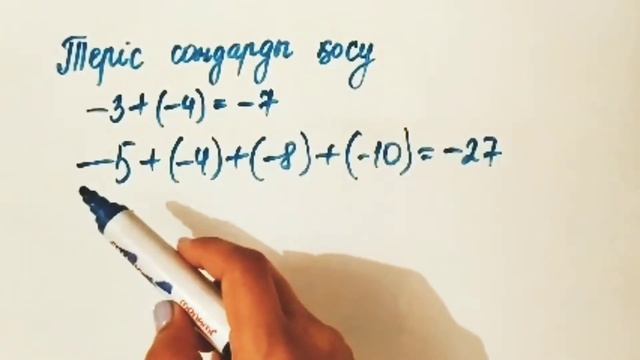 Теріс сандарды қосу
-3+(-4)=-7
-5+(-4)+(-8)+(-10)=-27